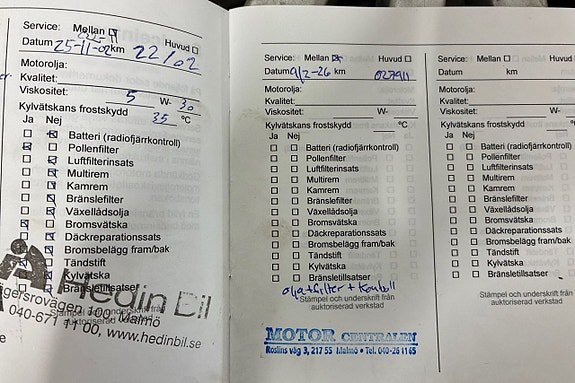 Service: Mellan Huvud
Datum 25-11-02 km 22/02
Motorolja:
Kvalitet:
Viskositet: 5 W- 30
Kylvätskans frostskydd 35 °C
Ja Nej
Batteri (radiofjärrkontroll)
Pollenfilter
Luftfilterinsats
Multirem
Kamrem
Bränslefilter
Växellådsolja
Bromsvätska
Däckreparationssats
Bromsbelägg fram/bak
Tändstift
Kylvätska
Bränsletillsatser
Hedin Bil
Stämpel och underskrift från
auktoriserad verkstad
Jägersrovägen 100, Malmö
040-671 11 00, www.hedinbil.se
Service: Mellan Huvud
Datum 9/2-26 km 027911
Motorolja:
Kvalitet:
Viskositet: W-
Kylvätskans frostskydd °C
Ja Nej
Batteri (radiofjärrkontroll)
Pollenfilter
Luftfilterinsats
Multirem
Kamrem
Bränslefilter
Växellådsolja
Bromsvätska
Däckreparationssats
Bromsbelägg fram/bak
Tändstift
Kylvätska
Bränsletillsatser
olja+filter +
Stämpel och underskrift från
auktoriserad verkstad
MOTOR CENTRALEN
Roslins väg 3, 217 55 Malmö • Tel. 040-26 11 65
Service: Mellan Huvud
Datum km
Motorolja:
Kvalitet:
Viskositet: W-
Kylvätskans frostskydd °C
Ja Nej
Batteri (radiofjärrkontroll)
Pollenfilter
Luftfilterinsats
Multirem
Kamrem
Bränslefilter
Växellådsolja
Bromsvätska
Däckreparationssats
Bromsbelägg fram/bak
Tändstift
Kylvätska
Bränsletillsatser
Stämpel och underskrift från
auktoriserad verkstad